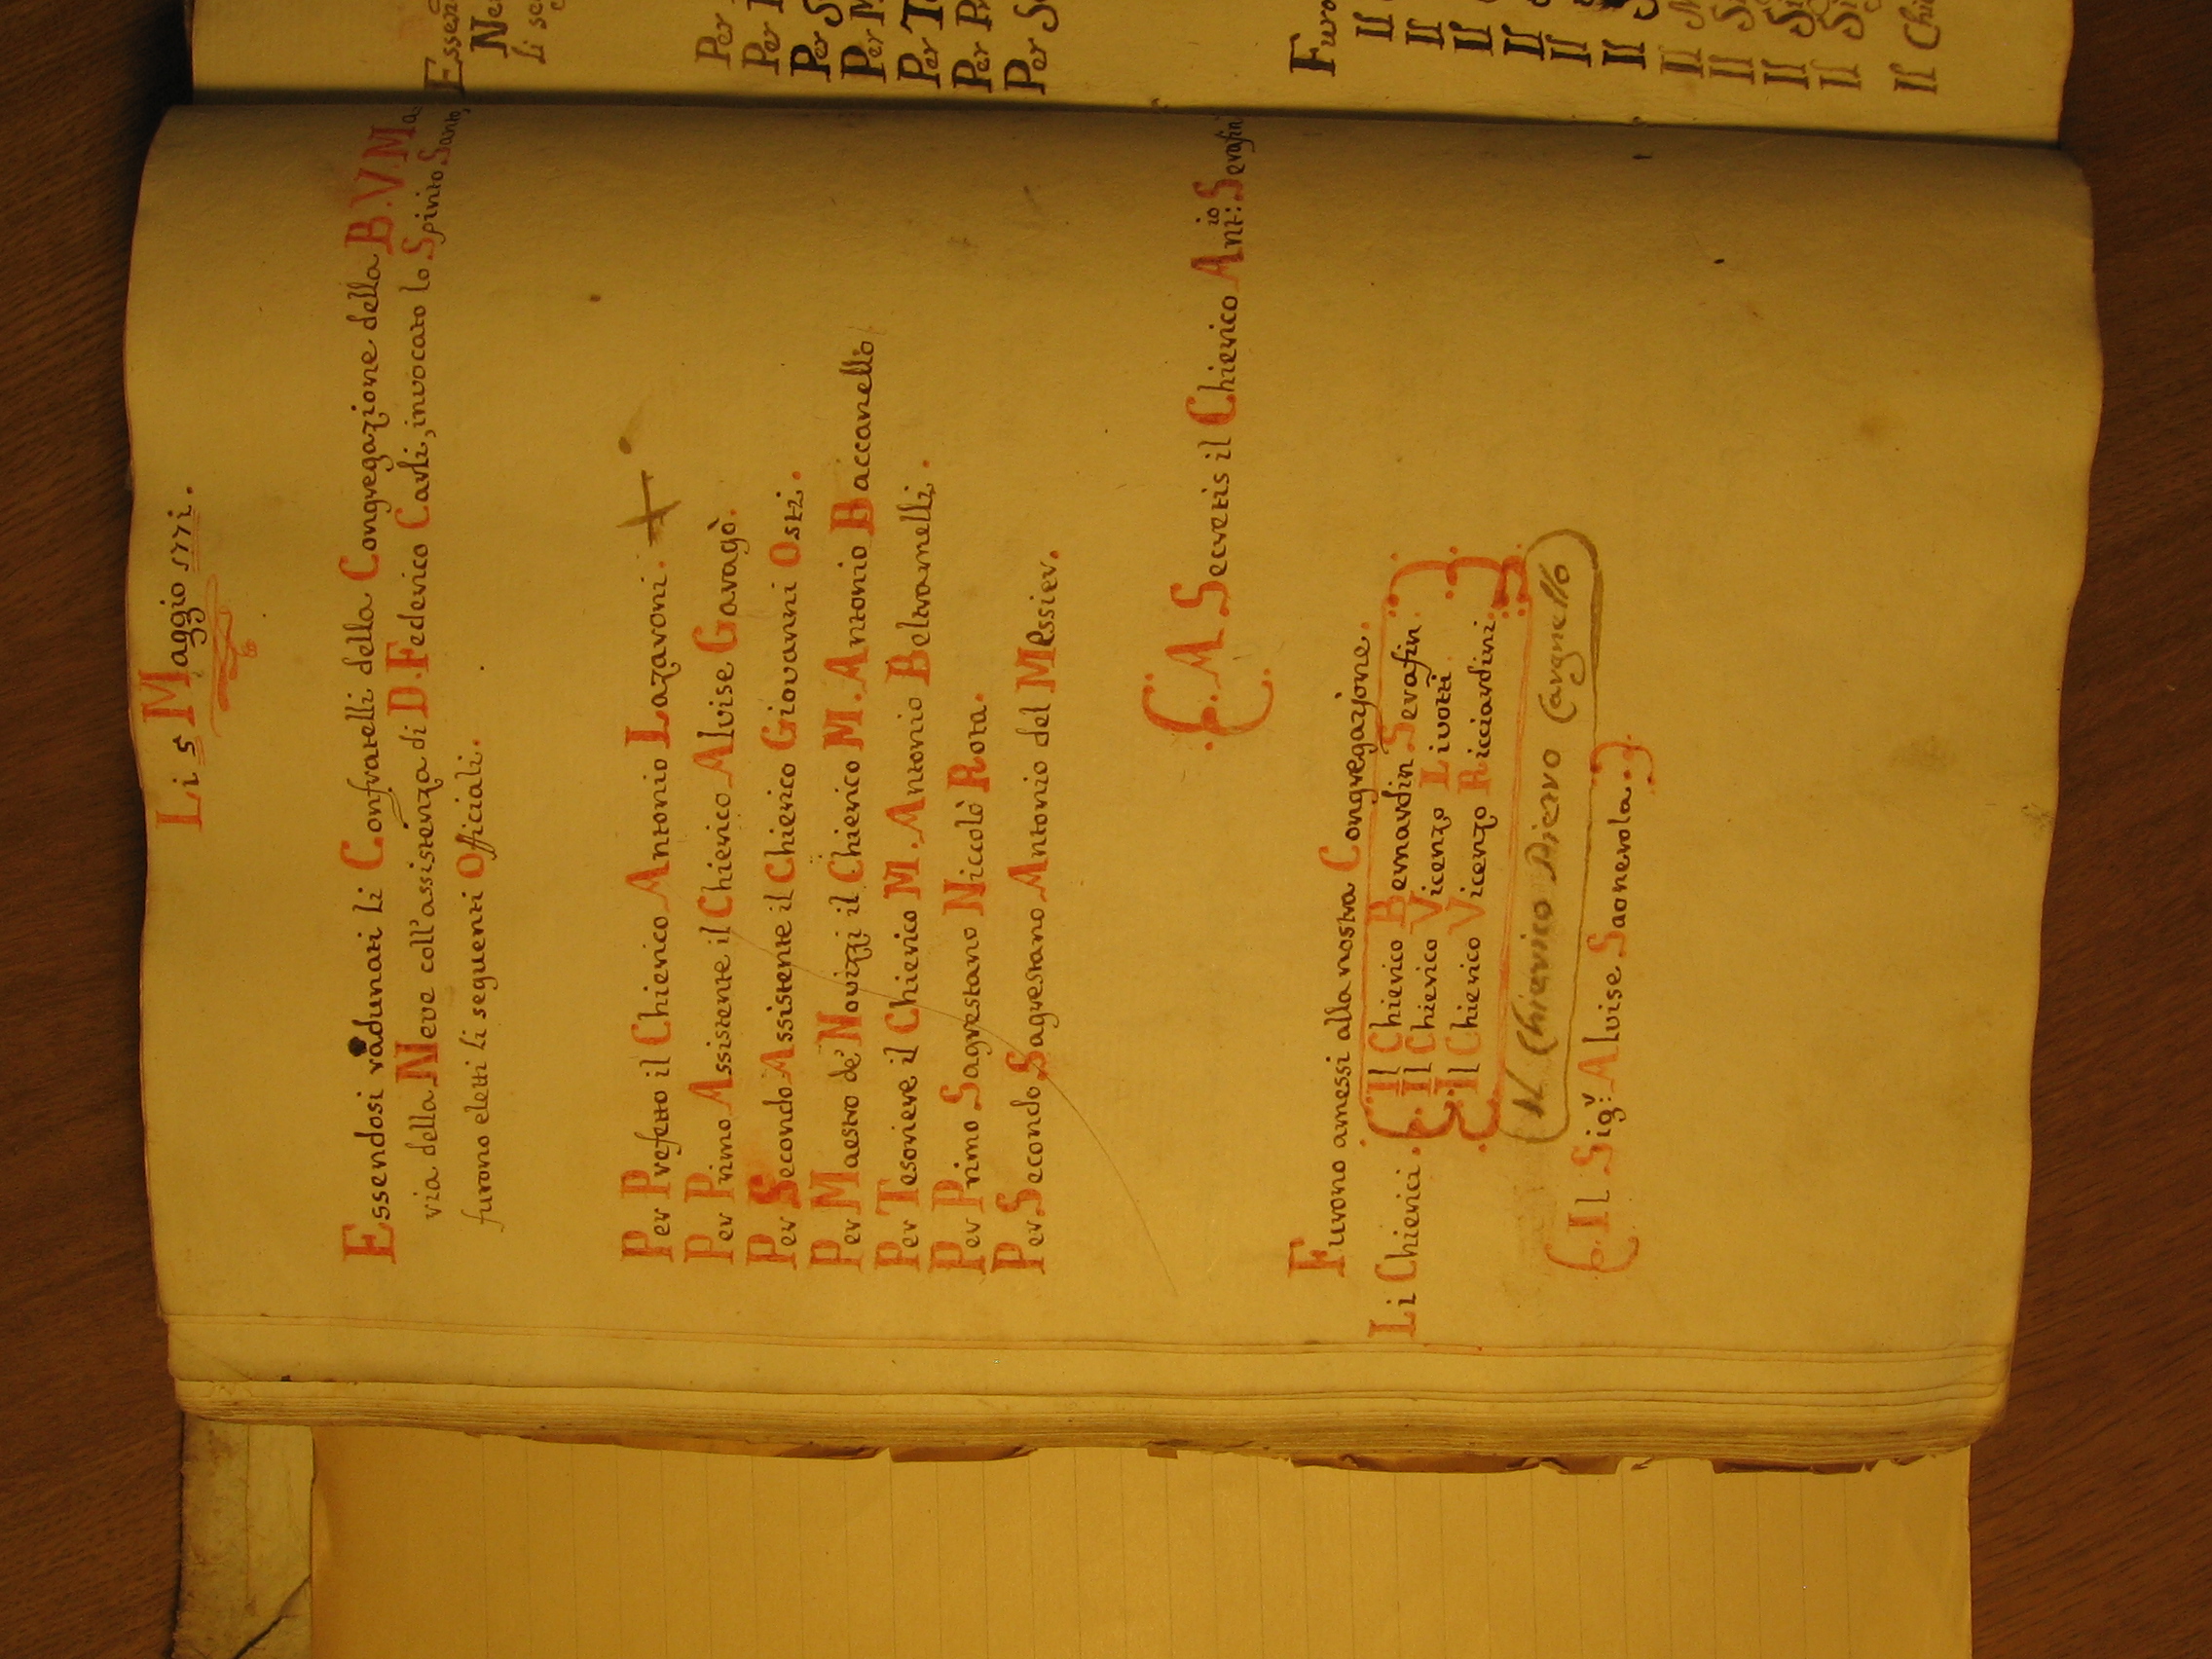 Li 5 Maggio 1771.
Essendosi radunati li Confratelli della Congregazione della B.V.Ma
via della Neve coll'assistenza di D. Federico Carli, invocato lo Spirito Santo,
furono eletti li seguenti Officiali.
Per Prefetto il Chierico Antonio Lazaroni.
Per Primo Assistente il Chierico Alvise Garagò.
Per Secondo Assistente il Chierico Giovanni Osti.
Per Maestro de' Novizzi il Chierico M. Antonio Baccanello
Per Tesoriere il Chierico M. Antonio Beltramelli.
Per Primo Sagrestano Niccolò Rota.
Per Secondo Sagrestano Antonio del Messier.
A Secretis il Chierico Ant:io Serafin
Furono amessi alla nostra Congregazione.
Li Chierici. Il Chierico Bernardin Serafin
Il Chierico Vicenzo Livotti
Il Chierico Vicenzo Ricciardini.
Il Chierico Pietro Cargnello
IL Sig:r Alvise Saonerola.
Essen
Ne
li se
Per
Per
Per S
Per M
Per T
Per P
Per S
Furo
Il
Il
Il
Il
Il
Il
Il
Il Si
Il Si
Il Si
Il Chi